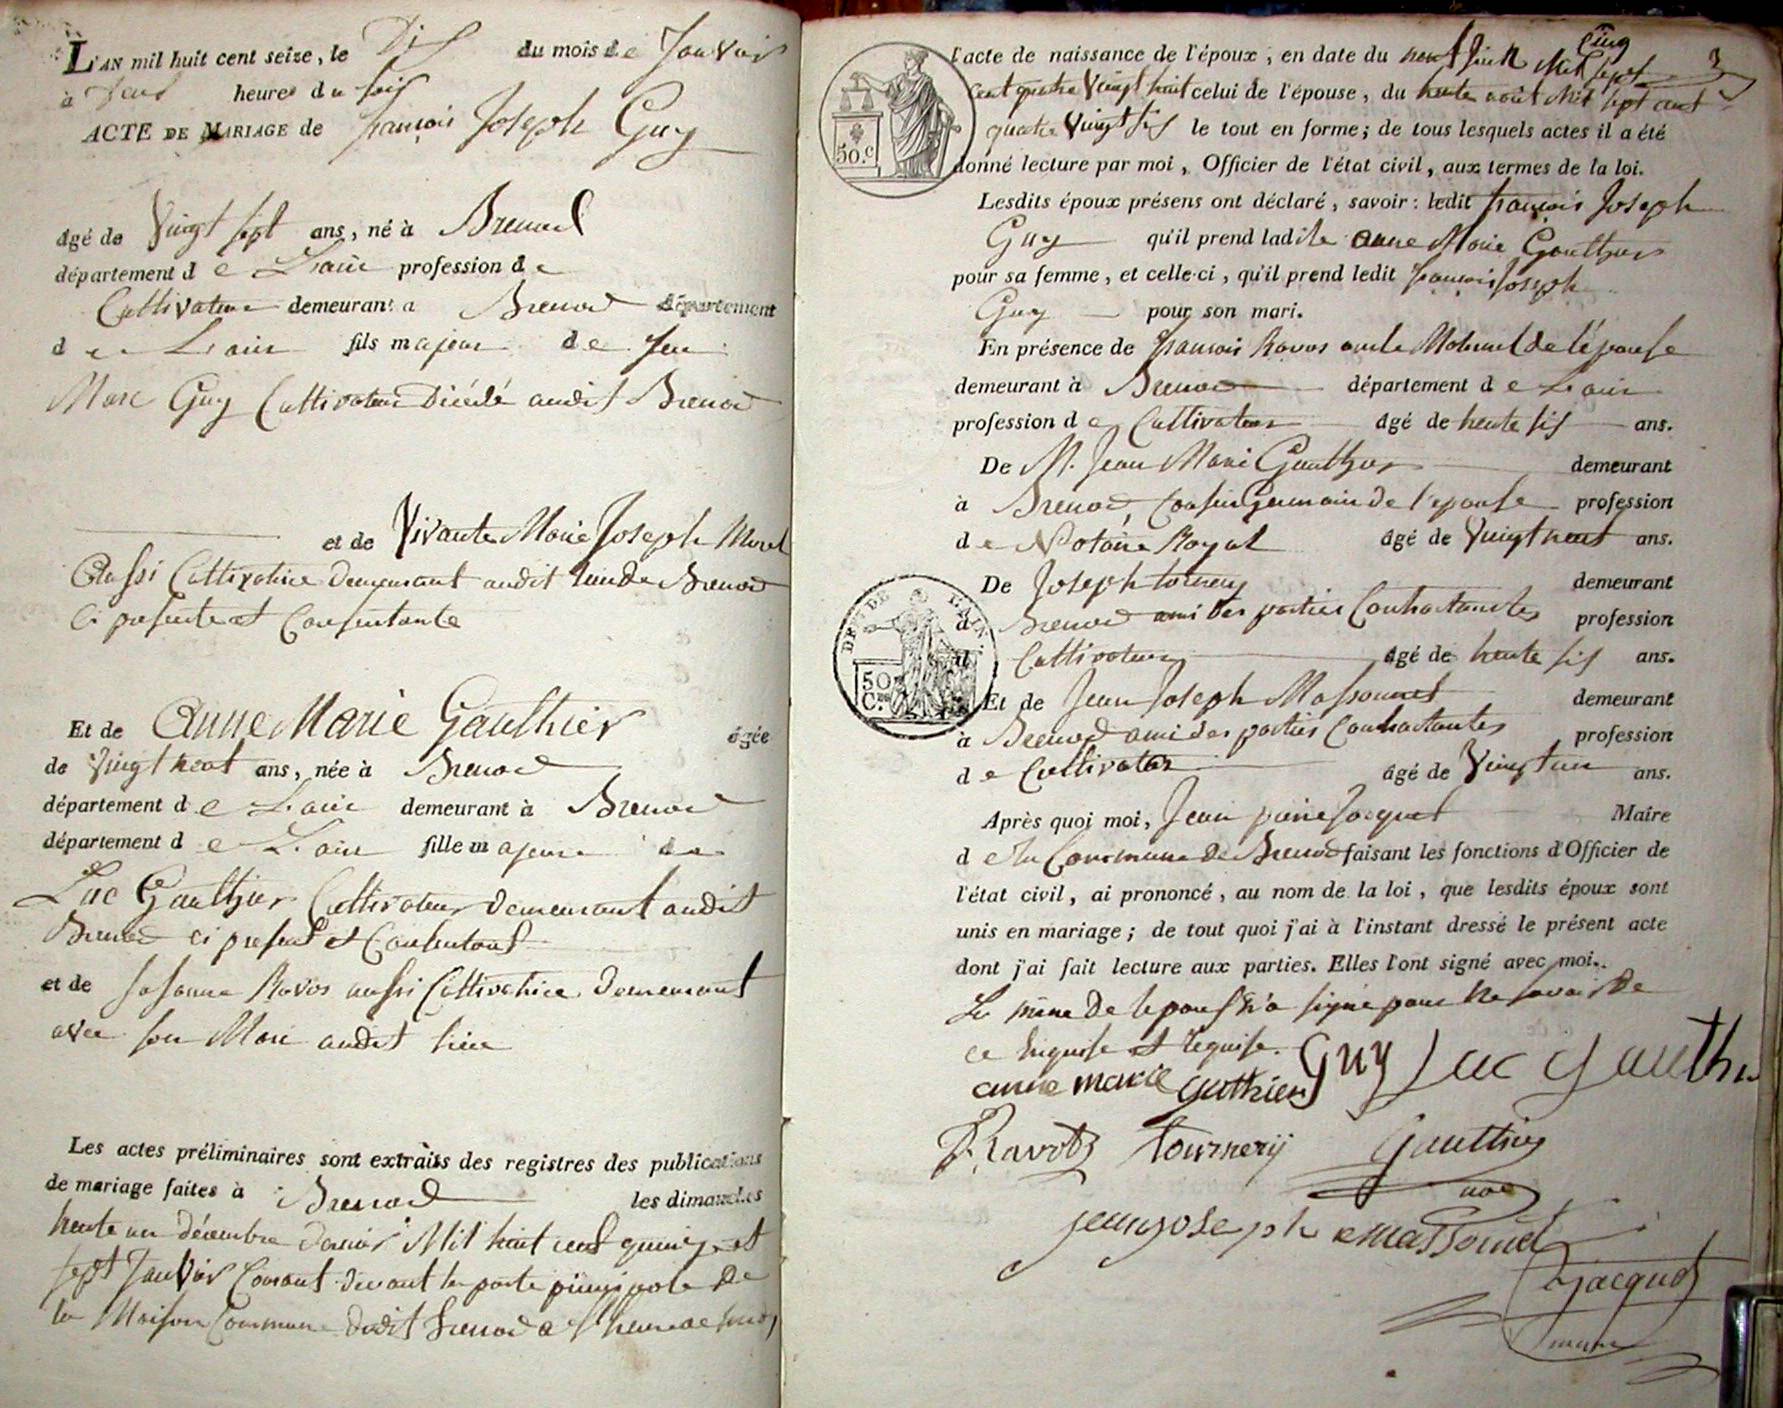 L'AN mil huit cent seize, le Dix du mois de Janvier
à deux heures du soir
ACTE DE MARIAGE de françois Joseph Guy
âgé de Vingt sept ans, né à Brenod
département de L'ain profession de
Cultivateur demeurant a Brenod département
de L'ain fils majeur de feu
Marc Guy Cultivateur Décédé audit Brenod
et de Vivante Marie Joseph Morel
Aussi Cultivatrice Demeurant audit lieu de Brenod
Ci presente et Consentante
Et de Anne Marie Gauthier âgée
de Vingt neuf ans, née à Brenod
département de L'ain demeurant à Brenod
département de L'ain fille majeure de
Luc Gauthier Cultivateur Demeurant audit
Brenod ci present et Consentant
et de Susanne Ravos aussi Cultivatrice Demeurant
avec son Mari audit lieu
Les actes préliminaires sont extraits des registres des publications
de mariage faites à Brenod les dimanches
trente un décembre dernier Mil huit cent quinze et
sept Janvier Courant devant la porte principale De
la Maison Commune dudit Brenod a l'heure de midi
3
l'acte de naissance de l'époux, en date du Cinq Mil sept
Cent quatre Vingt huit celui de l'épouse, du trente août Mil sept cent
quatre Vingt six le tout en forme; de tous lesquels actes il a été
donné lecture par moi, Officier de l'état civil, aux termes de la loi.
50.c
Lesdits époux présens ont déclaré, savoir: ledit françois Joseph
Guy qu'il prend ladite anne Marie Gauthier
pour sa femme, et celle-ci, qu'il prend ledit françois Joseph
Guy pour son mari.
En présence de françois Ravos oncle Maternel de l'épouse
demeurant à Brenod département de L'ain
profession de Cultivateur âgé de trente six ans.
De M. Jean Marie Gauthier demeurant
à Brenod, Cousin Germain de l'epouse profession
de Notaire Royal âgé de Vingt neuf ans.
De Joseph tournery demeurant
à Brenod ami des parties Contractantes profession
DEP. DE L'AIN.
50
C.es
de Cultivateur âgé de trente six ans.
Et de Jean Joseph Massonnet demeurant
à Brenod ami des parties Contractantes profession
de Cultivateur âgé de Vingt un ans.
Après quoi moi, Jean pierre Jacquet Maire
de la Commune de Brenod faisant les fonctions d'Officier de
l'état civil, ai prononcé, au nom de la loi, que lesdits époux sont
unis en mariage; de tout quoi j'ai à l'instant dressé le présent acte
dont j'ai fait lecture aux parties. Elles l'ont signé avec moi.
La mère De lepoux n'a signé pour ne savoir De
ce Enquise et requise.
Guy Luc Gauthier
anne marie gauthier
Ravots tournerÿ Gauthier
not
jean joseph massonnet
Jacquet
maire